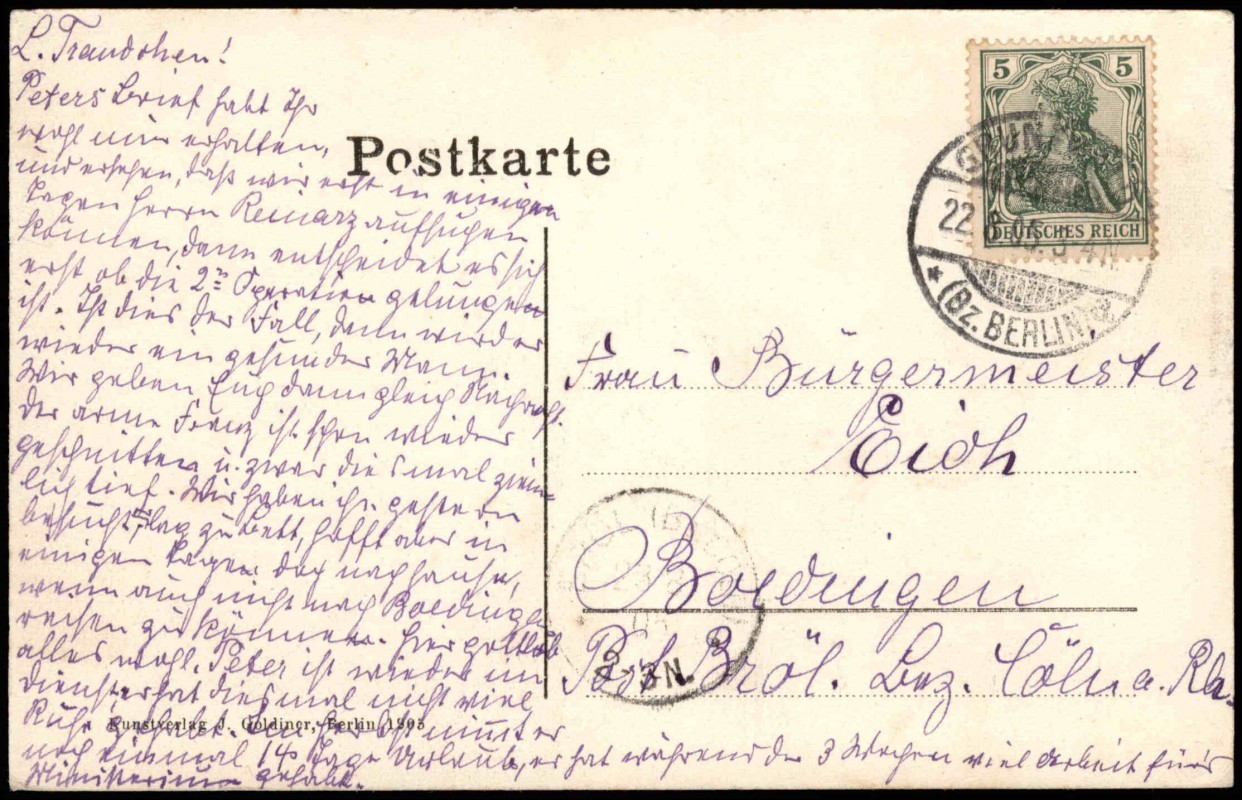 L. Traudchen!
Peters Brief habt Ihr
wohl nun erhalten,
und ersehen, daß wir erst in einigen
Tagen Herrn Reinarz aufsuchen
können, dann entscheidet es sich
erst ob die 2te Operation gelungen
ist. Ist dies der Fall, dann wird er
wieder ein gesunder Mann.
Wir geben Euch dann gleich Nachricht.
Der arme Franz ist schon wieder
geschnitten u. zwar diesmal ziem-
lich tief. Wir haben ihn gestern
besucht, er lag zu Bett, hofft aber in
einigen Tagen doch nachhause,
wenn auch nicht nach Boedingen
reisen zu können. Hier gottlob
alles wohl. Peter ist wieder im
Dienst er hat diesmal nicht viel
Ruhe gehabt. Im Herbst nimmt er
noch einmal 14 Tage Urlaub, er hat während der 3 Wochen viel Arbeit für's
Ministerium gehabt.
Postkarte
5 5
DEUTSCHES REICH
22. 05. 3-4N.
(Bz. BERLIN)
Frau Bürgermeister
Eich
Boedingen
Bröl. Bez. Cöln a. Rh.
2-3N.
Kunstverlag J. Goldiner, Berlin 1905